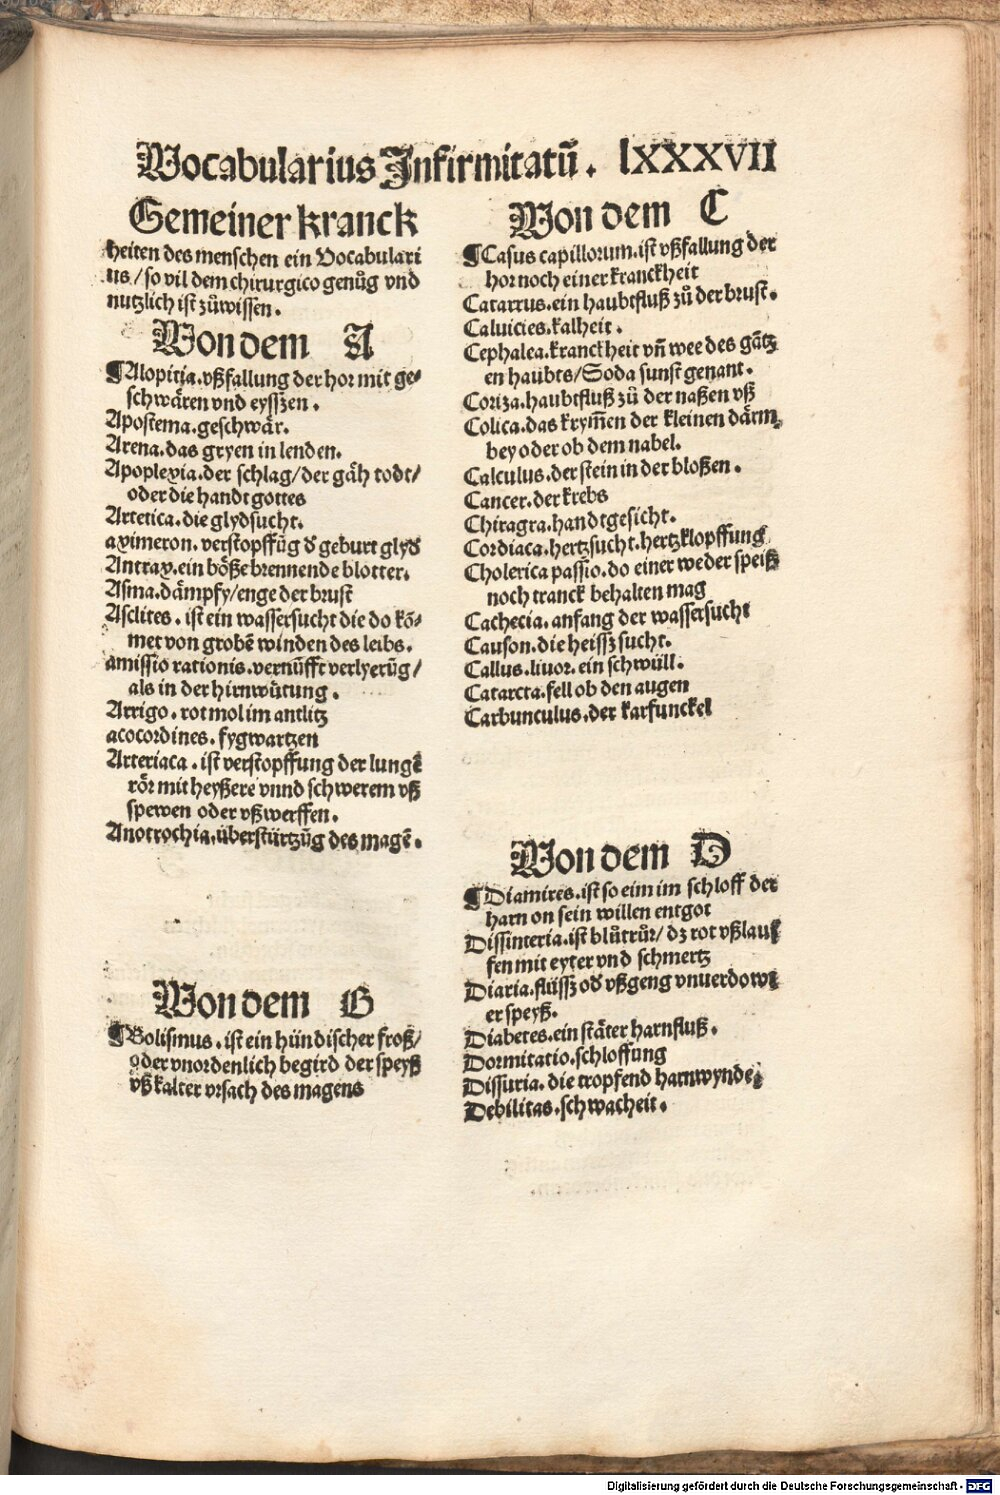 Vocabularius Infirmitatū. lXXXVII
Gemeiner kranck
heiten des menschen ein Vocabulari
us/so vil dem chirurgico genůg vnd
nutzlich ist zůwissen.
Von dem A
¶Alopitia.vßfallung der hor mit ge⸗
schwären vnd eysszen.
Apostema.geschwär.
Arena.das gryen in lenden.
Apoplexia.der schlag/der gäh todt/
oder die handt gottes
Artetica.die glydsucht.
aximeron.verstopffūg ď geburt glyď
Antrax.ein böße brennende blotter.
Asma.dämpfy/enge der brust
Asclites.ist ein wassersucht die do kō⸗
met von grobē winden des leibs.
amissio rationis.vernūfft verlyerūg/
als in der hirnwütung.
Arrigo.rot mol im antlitz
acocordines.fygwartzen
Arteriaca.ist verstopffung der lungē
rör mit heyßere vnnd schwerem vß
spewen oder vßwerffen.
Anotrochia.überstürtzūg des magē.
Von dem B
¶Bolismus.ist ein hündischer froß/
oder vnordenlich begird der speyß
vß kalter vrsach des magens
Von dem C
¶Casus capillorum.ist vßfallung der
hor noch einer kranckheit
Catarrus.ein haubtfluß zů der brust.
Caluicies.kalheit.
Cephalea.kranckheit vn̄ wee des gātz
en haubts/Soda sunst genant.
Coriza.haubtfluß zů der naßen vß
Colica.das krym̄en der kleinen därm
bey oder ob dem nabel.
Calculus.der stein in der bloßen.
Cancer.der krebs
Chiragra.handtgesicht.
Cordiaca.hertzsucht.hertzklopffung
Cholerica passio.do einer weder speiß
noch tranck behalten mag
Cachecia.anfang der wassersucht
Causon.die heissz sucht.
Callus.liuor.ein schwüll.
Catarcta.fell ob den augen
Carbunculus.der karfunckel
Von dem D
¶Diamires.ist so eim im schloff der
harn on sein willen entgot
Dissinteria.ist blůtrůr/dz rot vßlauf
fen mit eyter vnd schmertz
Diaria.flüssz oď vßgeng vnuerdowt
er speyß.
Diabetes.ein stäter harnfluß.
Dormitatio.schloffung
Dissuria.die tropfend harnwynde.
Debilitas.schwacheit.
Digitalisierung gefördert durch die Deutsche Forschungsgemeinschaft - DFG